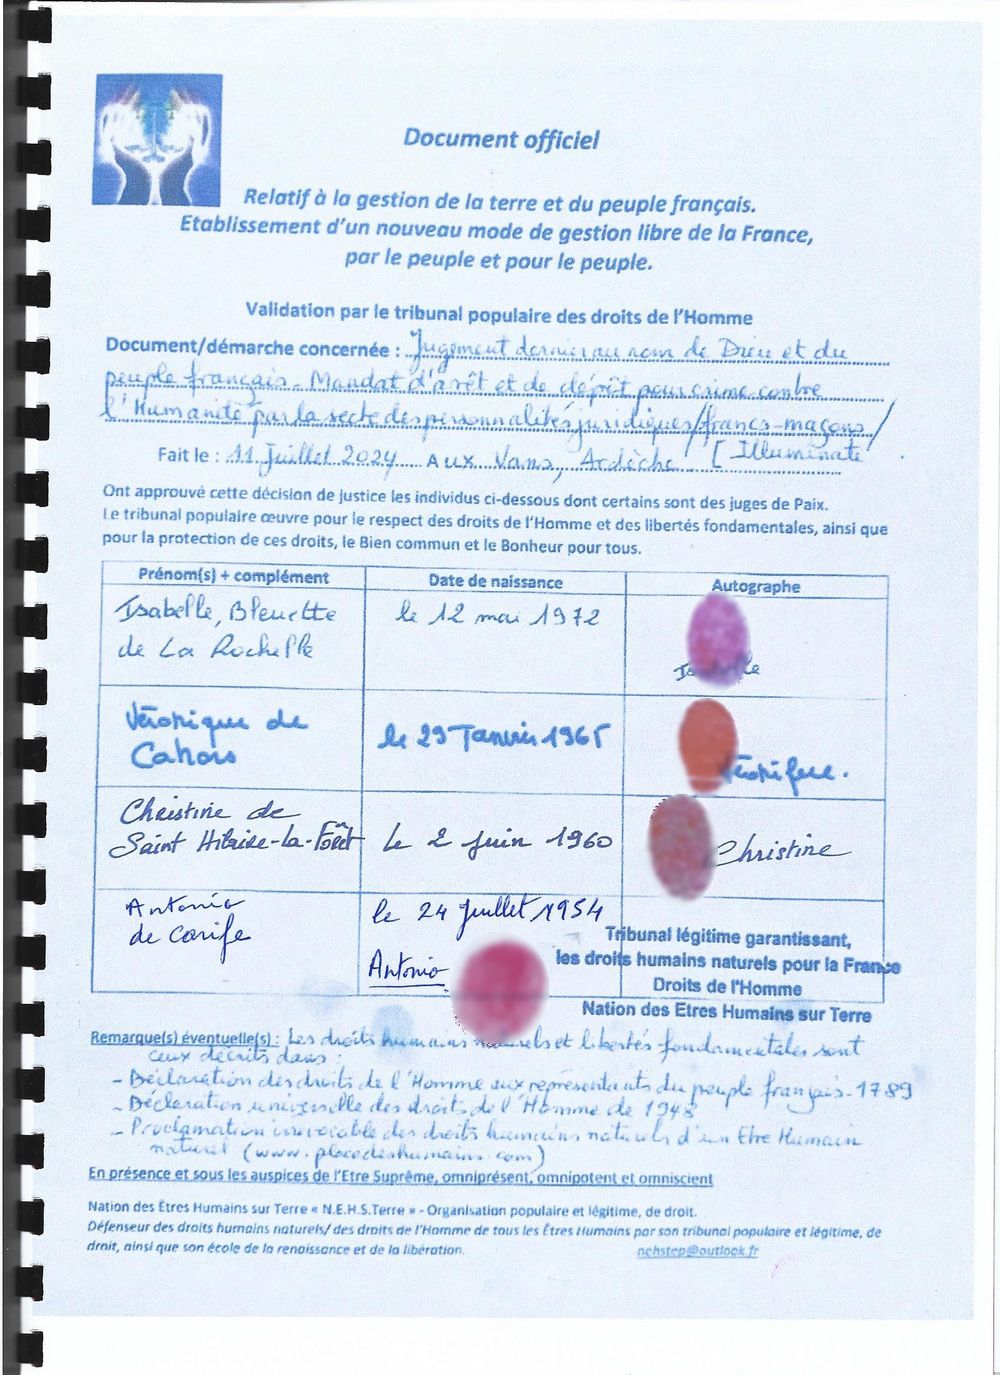 Document officiel
Relatif à la gestion de la terre et du peuple français.
Etablissement d'un nouveau mode de gestion libre de la France,
par le peuple et pour le peuple.
Validation par le tribunal populaire des droits de l'Homme
Document/démarche concernée : Jugement dernier au nom de Dieu et du
peuple français - Mandat d'arrêt et de dépôt pour crime contre
l'Humanité par la secte des personnalités juridiques/francs-maçons/
Fait le : 11 Juillet 2024 Aux Vans, Ardèche [Illuminate
Ont approuvé cette décision de justice les individus ci-dessous dont certains sont des juges de Paix.
Le tribunal populaire œuvre pour le respect des droits de l'Homme et des libertés fondamentales, ainsi que
pour la protection de ces droits, le Bien commun et le Bonheur pour tous.
Prénom(s) + complément Date de naissance Autographe
Isabelle, Bleuette le 12 mai 1972
de La Rochelle
Véronique de le 29 Janvier 1965
Cahors Véronique.
Christine de
Saint Hilaire-la-Forêt le 2 Juin 1960 Christine
Antonio le 24 Juillet 1954
de Carife
Antonio
Tribunal légitime garantissant,
les droits humains naturels pour la France
Droits de l'Homme
Nation des Etres Humains sur Terre
Remarque(s) éventuelle(s) : Les droits humains naturels et libertés fondamentales sont
ceux décrits dans :
- Déclaration des droits de l'Homme aux représentants du peuple français - 1789
- Déclaration universelle des droits de l'Homme de 1948
- Proclamation irrévocable des droits humains naturels d'un Etre Humain
naturel (www.placedeshumains.com)
En présence et sous les auspices de l'Etre Suprême, omniprésent, omnipotent et omniscient
Nation des Êtres Humains sur Terre « N.E.H.S.Terre » - Organisation populaire et légitime, de droit.
Défenseur des droits humains naturels/ des droits de l'Homme de tous les Êtres Humains par son tribunal populaire et légitime, de
droit, ainsi que son école de la renaissance et de la libération. nehstep@outlook.fr